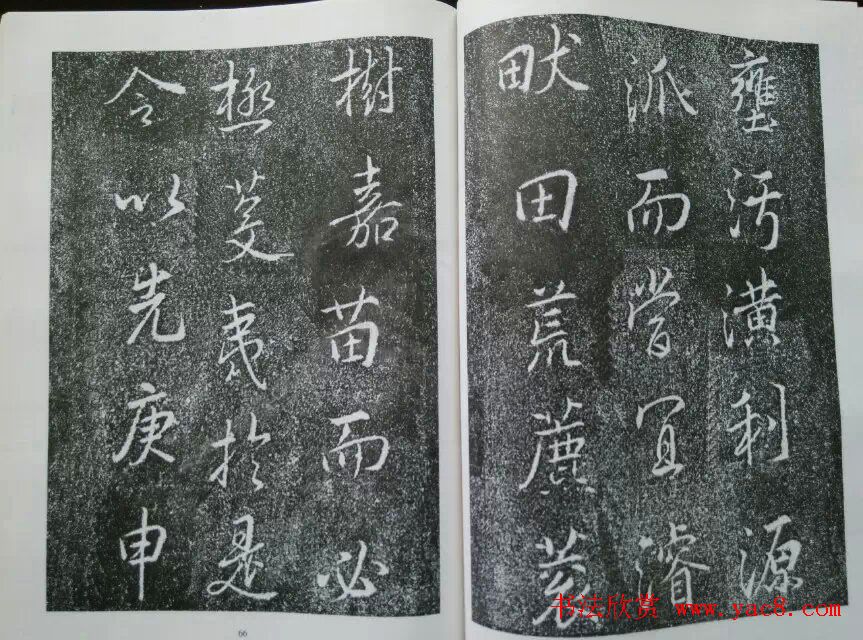 壅汚潢利源
派而營宜濬
畎田荒藨蓘
樹嘉苗而必
極芟夷於是
令以先庚申
66
书法欣赏 www.yac8.com